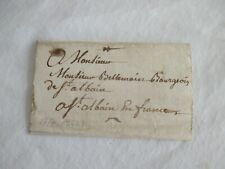 A Monsieur
Monsieur Bellemain Bourgeois
de St albain
a St. albain En france